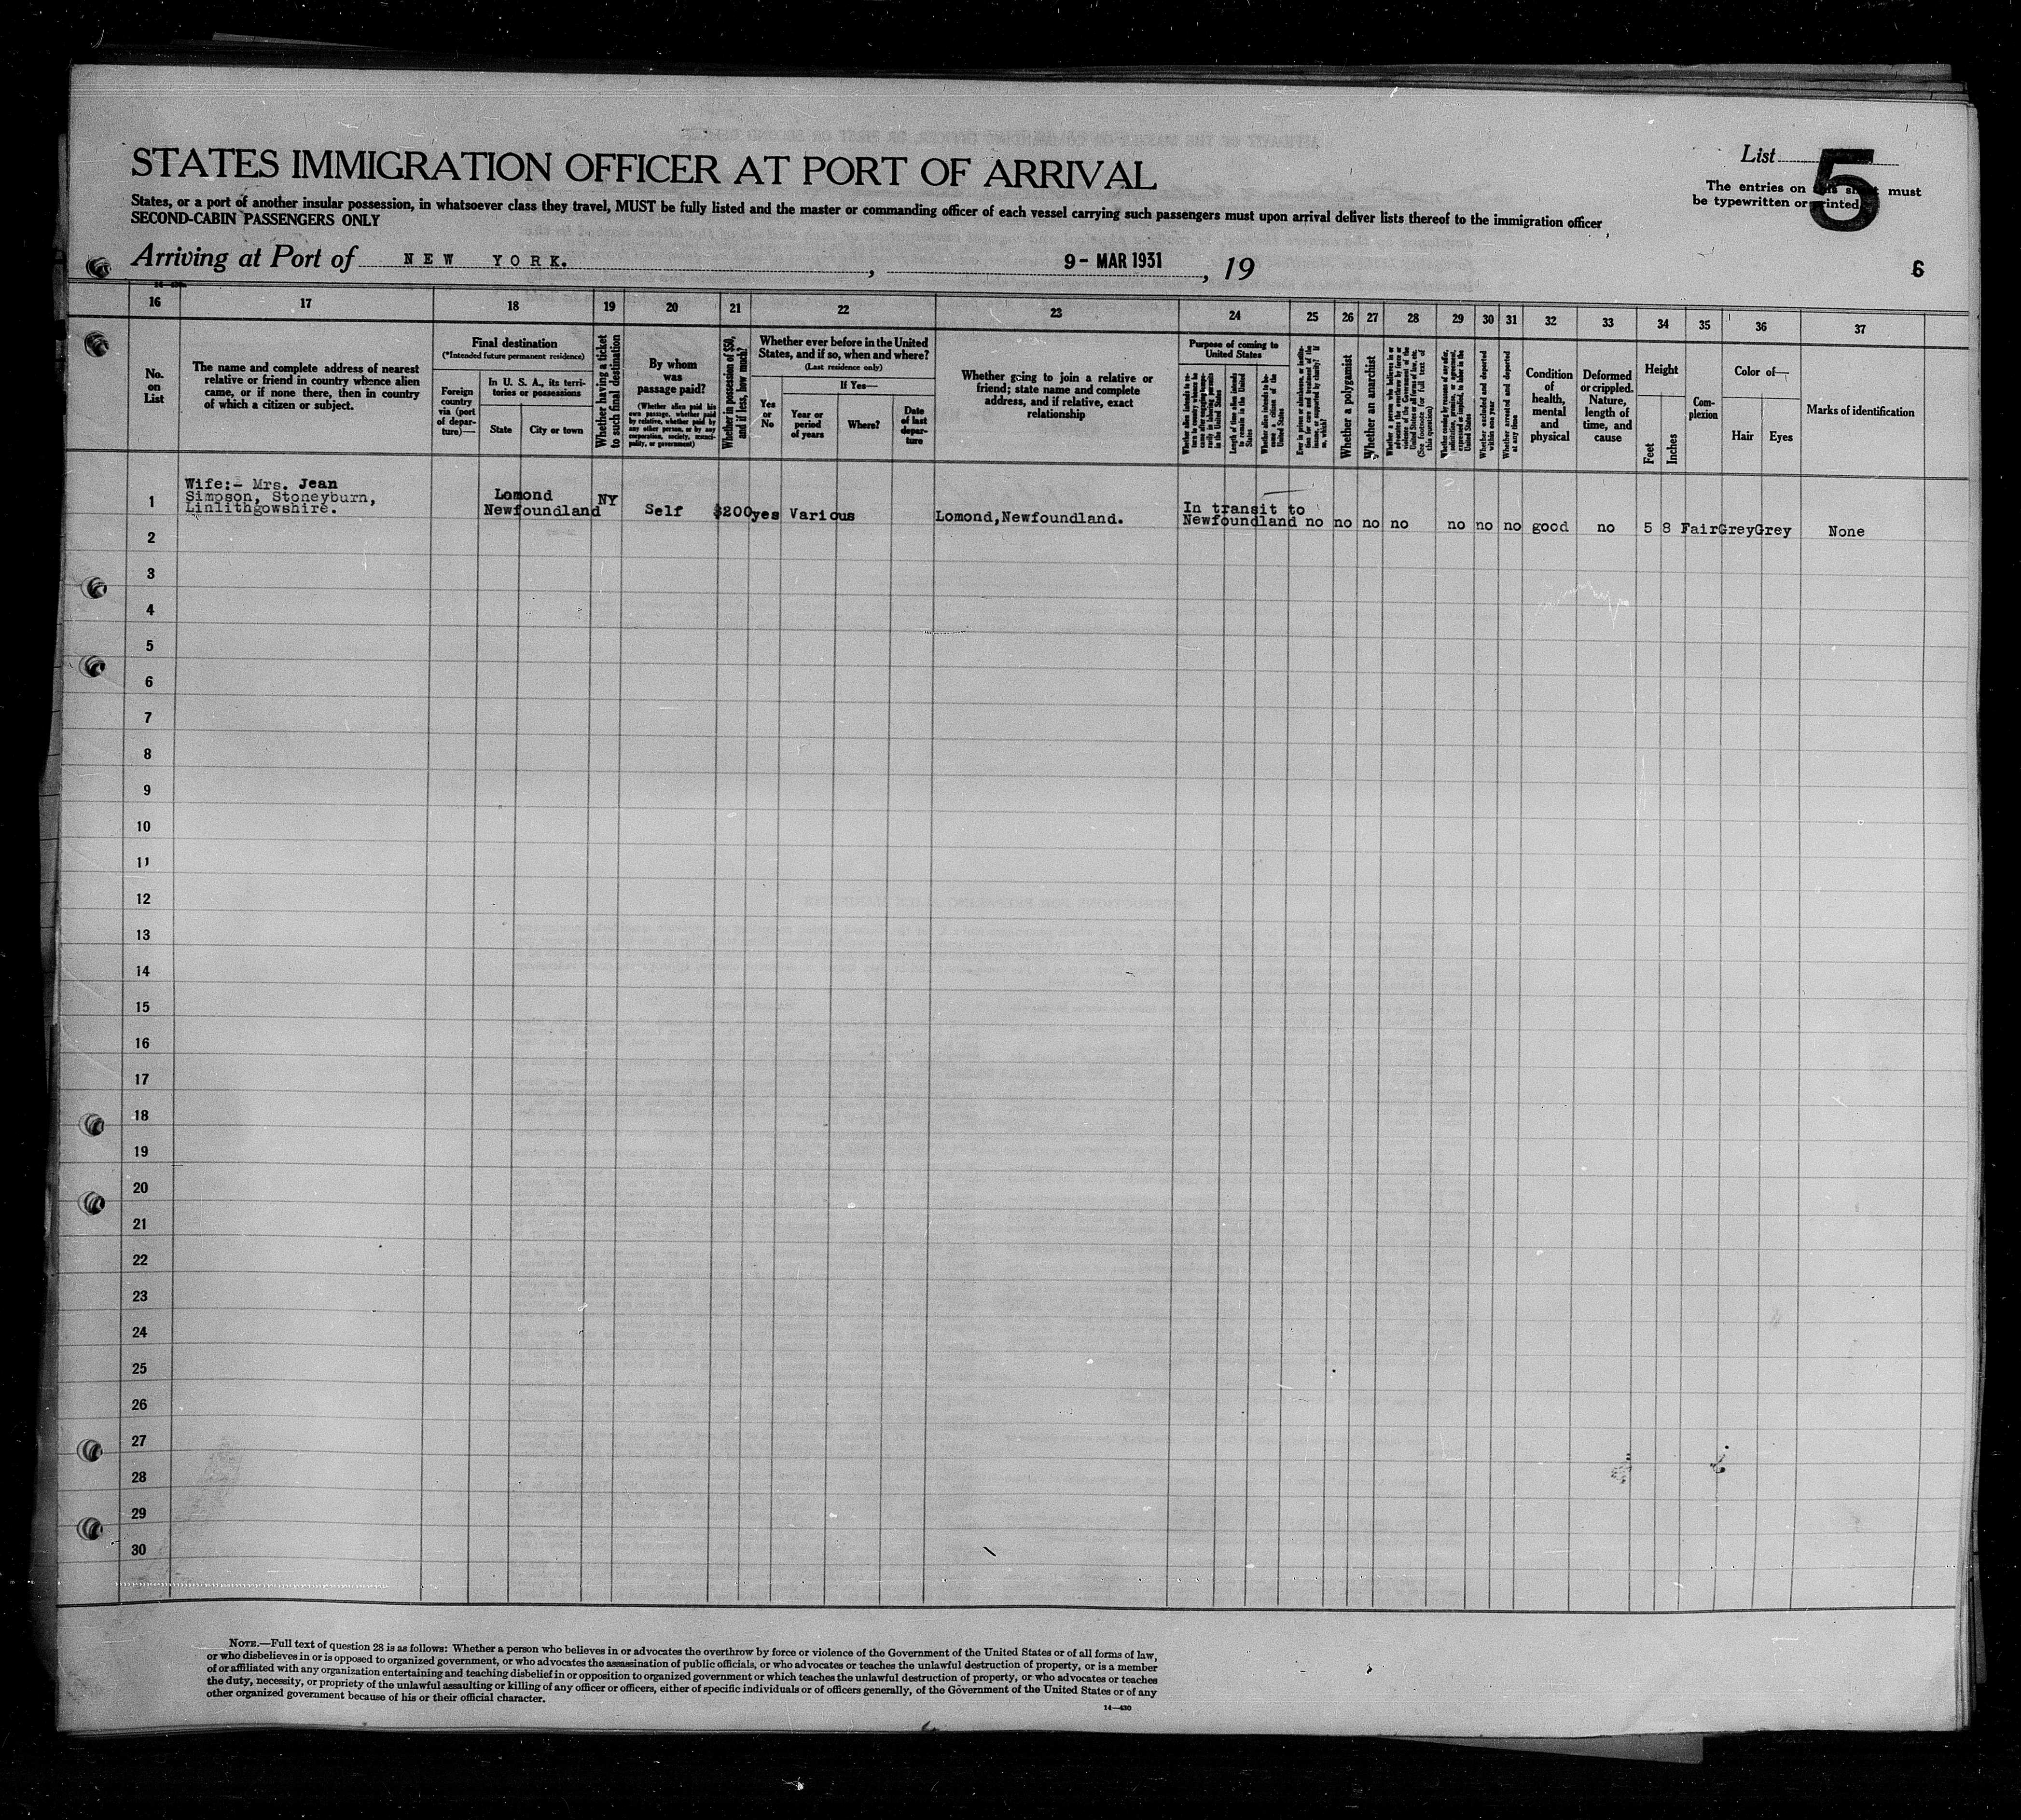 STATES IMMIGRATION OFFICER AT PORT OF ARRIVAL
List 5
The entries on must
be typewritten or printed
States, or a port of another insular possession, in whatsoever class they travel, MUST be fully listed and the master or commanding officer of each vessel carrying such passengers must upon arrival deliver lists thereof to the immigration officer
SECOND-CABIN PASSENGERS ONLY
Arriving at Port of NEW YORK. , 9- MAR 1931 , 19
6
16 17 18 19 20 21 22 23 24 25 26 27 28 29 30 31 32 33 34 35 36 37
No.
on
List
The name and complete address of nearest
relative or friend in country whence alien
came, or if none there, then in country
of which a citizen or subject.
Final destination
(*Intended future permanent residence)
Foreign
country
via (port
of depar-
ture)—
In U. S. A., its terri-
tories or possessions
State
City or town
Whether having a ticket
to such final destination
By whom
was
passage paid?
(Whether alien paid his
own passage, whether paid
by relative, whether paid by
any other person, or by any
corporation, society, munici-
pality, or government)
Whether in possession of $50,
and if less, how much?
Whether ever before in the United
States, and if so, when and where?
(Last residence only)
Yes
or
No
If Yes—
Year or
period
of years
Where?
Date
of last
depar-
ture
Whether going to join a relative or
friend; state name and complete
address, and if relative, exact
relationship
Purpose of coming to
United States
Length of time alien intends
to remain in the United
States
Whether alien intends to be-
come a citizen of the
United States
Whether a polygamist
Whether an anarchist
Whether excluded and deported
within one year
Whether arrested and deported
at any time
Condition
of
health,
mental
and
physical
Deformed
or crippled.
Nature,
length of
time, and
cause
Height
Feet
Inches
Com-
plexion
Color of—
Hair
Eyes
Marks of identification
1
Wife:- Mrs. Jean
Simpson, Stoneyburn,
Linlithgowshire.
Lomond
Newfoundland
NY
Self
$200
yes
Various
Lomond,Newfoundland.
In transit to
Newfoundland
no no no no no no no good no 5 8 Fair Grey Grey None
2
3
4
5
6
7
8
9
10
11
12
13
14
15
16
17
18
19
20
21
22
23
24
25
26
27
28
29
30
NOTE.—Full text of question 28 is as follows: Whether a person who believes in or advocates the overthrow by force or violence of the Government of the United States or of all forms of law,
or who disbelieves in or is opposed to organized government, or who advocates the assassination of public officials, or who advocates or teaches the unlawful destruction of property, or is a member
of or affiliated with any organization entertaining and teaching disbelief in or opposition to organized government or which teaches the unlawful destruction of property, or who advocates or teaches
the duty, necessity, or propriety of the unlawful assaulting or killing of any officer or officers, either of specific individuals or of officers generally, of the Government of the United States or of any
other organized government because of his or their official character.
14—430